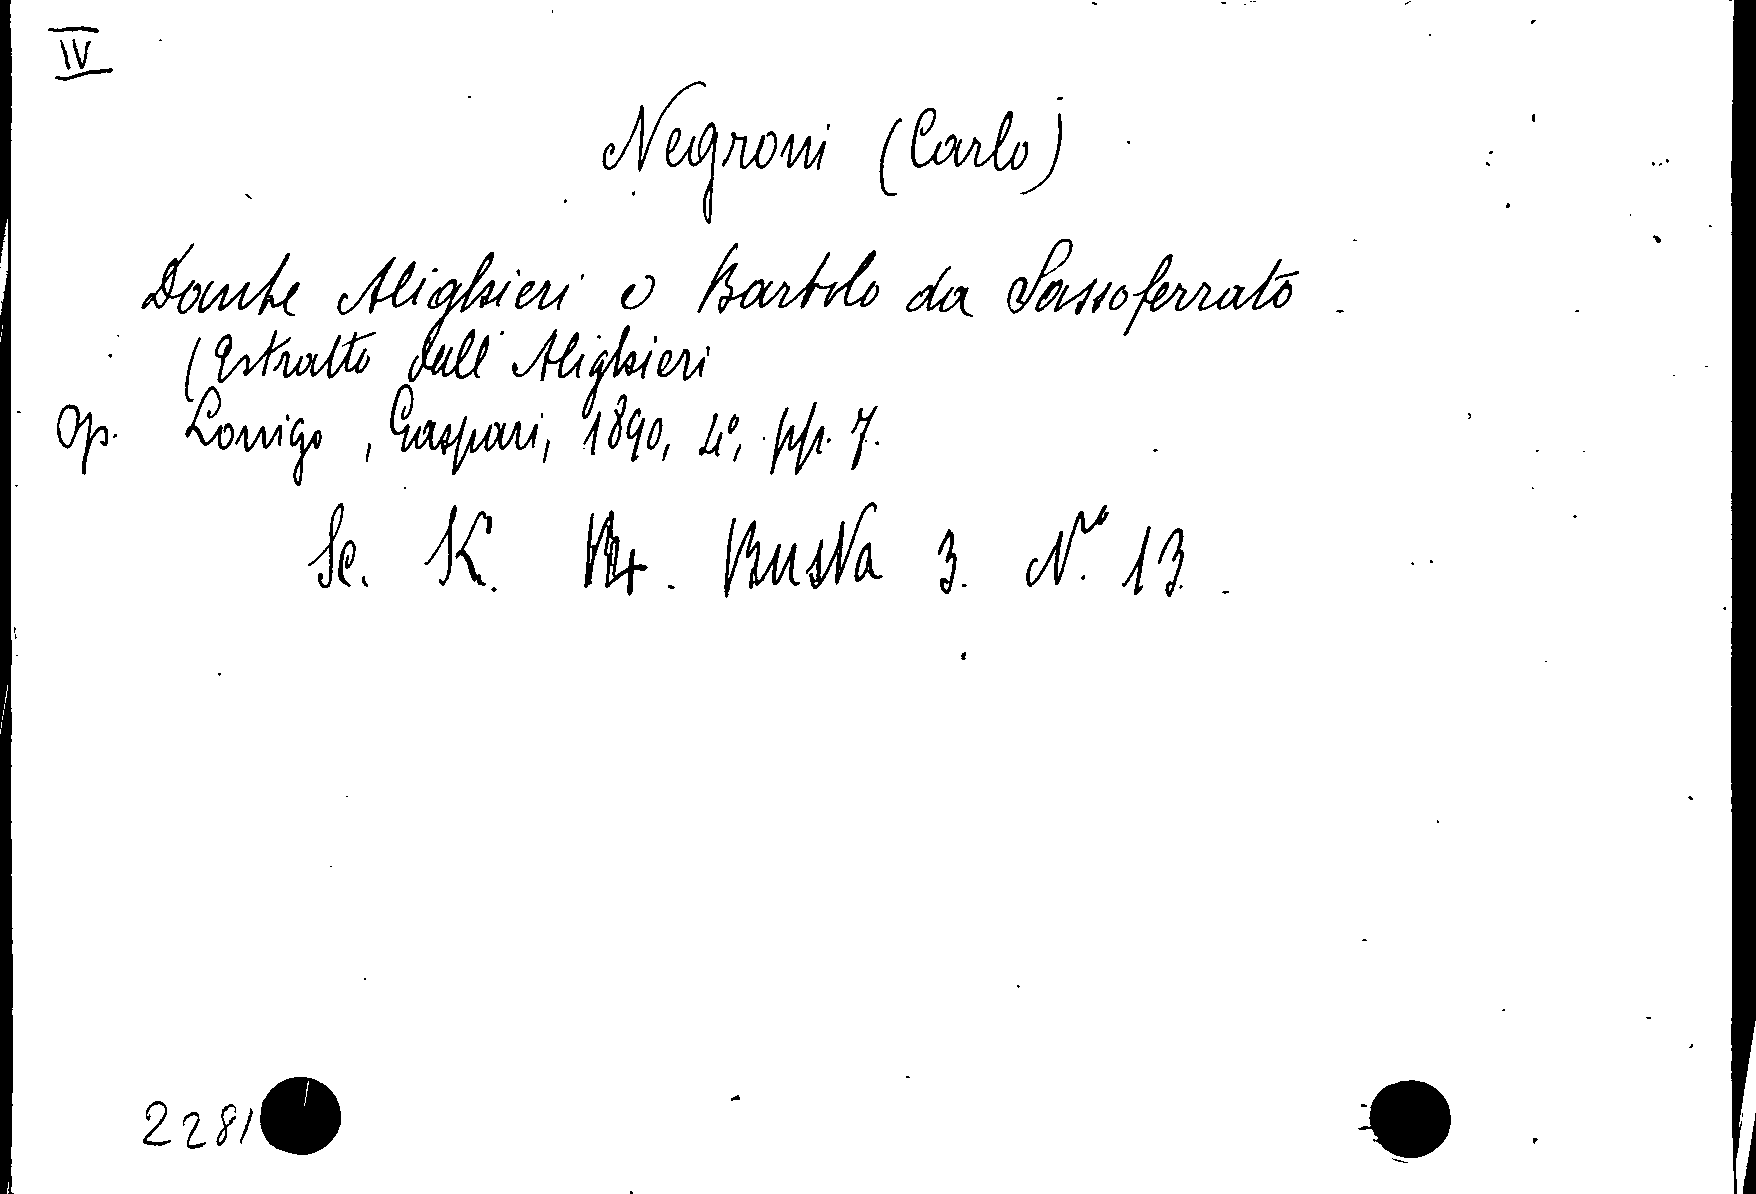 IV
Negroni (Carlo)
Dante Alighieri e Bartolo da Sassoferrato
(Estratto dall' Alighieri
Op. Lonigo, Gaspari, 1890, 4º, pp. 7.
Sc. K. Busta 3. N.º 13.
2281